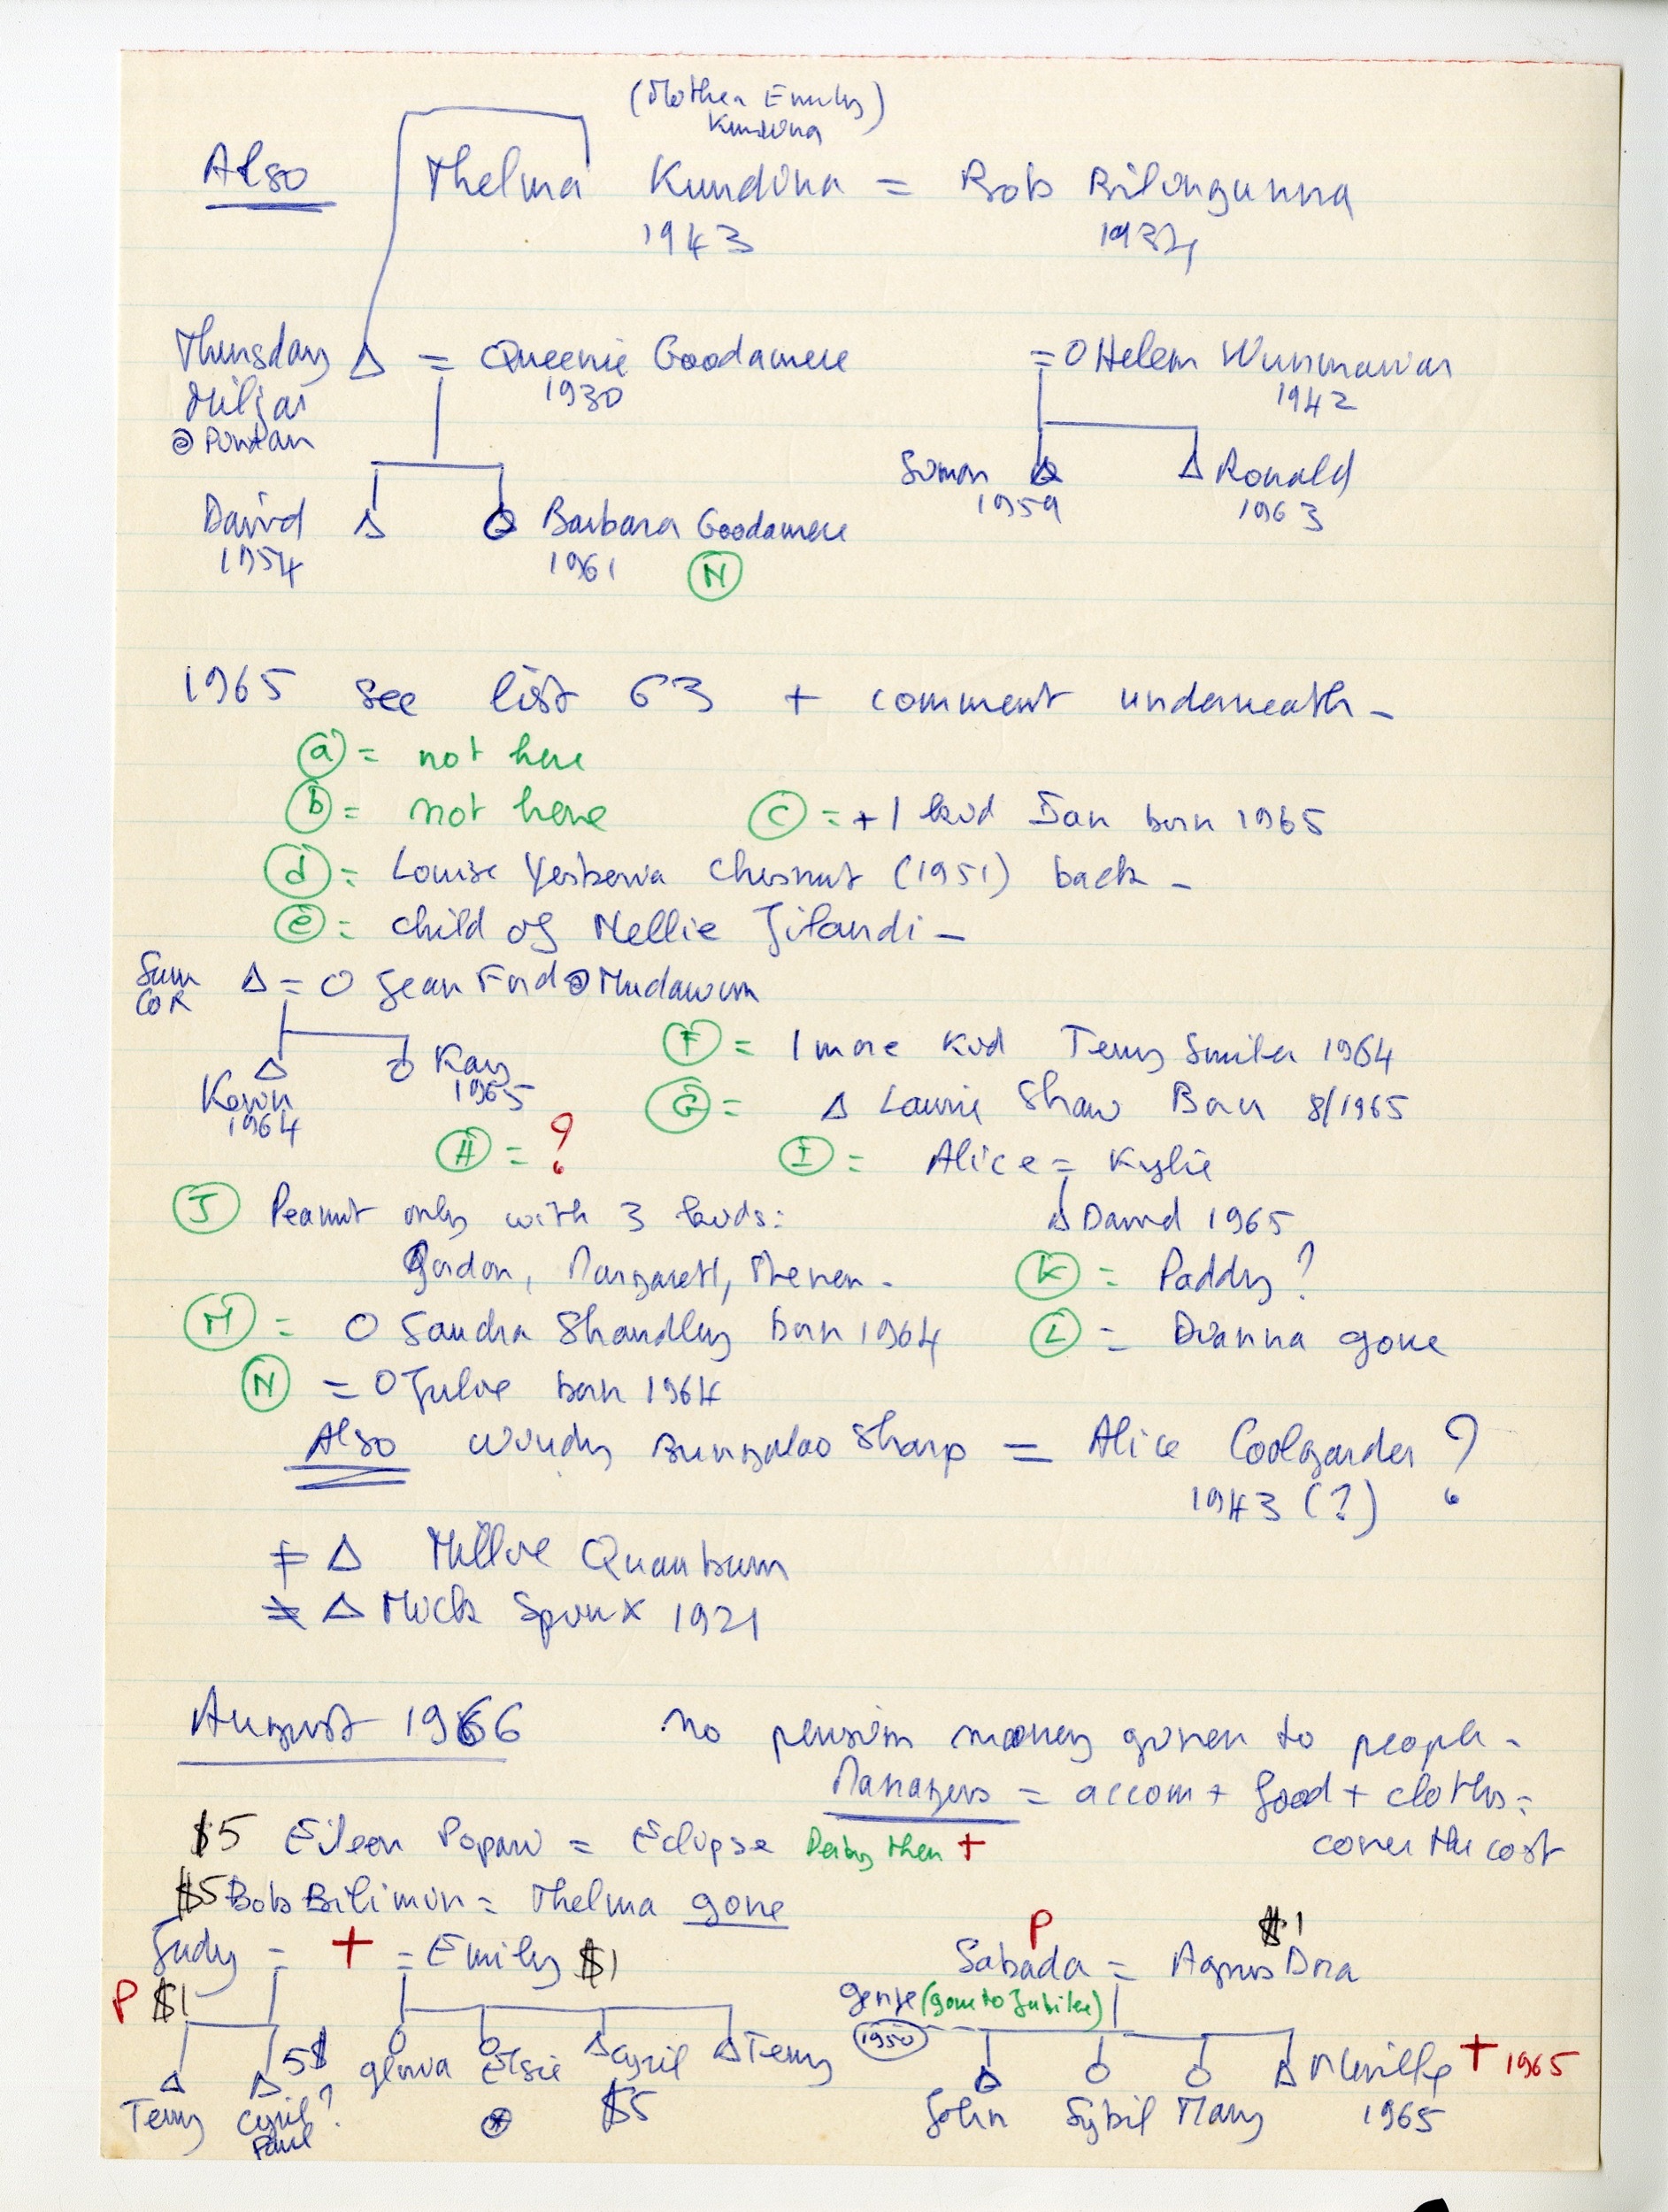 (Mother Emily
Kundina)
Also Thelma Kundina = Bob Bilingunna
1943 1934
Thursday Δ = Queenie Goodamere = O Helen Wunmawar
Miljar 1930 1942
@ Puntan
Simon 1959 Δ Ronald 1963
David Δ Barbara Goodamere
1954 1961 (N)
1965 see list 63 + comment underneath -
(a) = not here
(b) = not here (c) = +1 kid Ian born 1965
(d) = Louise Chesnut (1951) back -
(e) = child of Nellie Jilandi -
Sam Δ = O Jean Ford @ Mudawurn
COR
(F) = 1 more kid Terry Smiler 1964
Kevin O Kay
1964 1965
(G) = Δ Laurie Shaw Born 8/1965
(H) = ? (I) = Alice = Kylie
(J) Peanut only with 3 kids: Δ David 1965
Gordon, Margarett, - (K) = Paddy?
(M) = O Sandra Shandley born 1964 (L) = Dianna gone
(N) = O Julie born 1964
Also Windy Bungaloo Sharp = Alice Coolgarder ?
1943 (?)
≠ Δ Millie Quanbum
≠ Δ Mick Spinx 1921
August 1966 no pension money given to people -
Managers = accom + food + cloths =
cover the cost
$5 Eileen Popawi = Eclipse Derby then +
$5 Bob Bilimin = Thelma gone
Judy = + = Emily $1
P $1
P $1
Sabada = Agnes Dora
(gone to Jubilee)
(1950)
5$ Gloria Elsie Δ Cyril Δ Terry
$5
Terry Cyril?
Paul
John Sybil Mary Δ Neville + 1965
1965